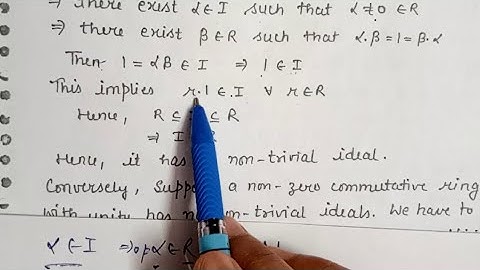 ⇒ there exist α ∈ I such that α ≠ 0 ∈ R
⇒ there exist β ∈ R such that α.β = 1 = β.α
Then 1 = αβ ∈ I ⇒ 1 ∈ I
This implies r.1 ∈ I ∀ r ∈ R
Hence, R ⊆ ⊆ R
⇒ I
Hence, it has non-trivial ideal.
Conversely, Suppose a non-zero commutative ring
with unity has non-trivial ideals. We have to
α ∈ I ⇒ α ∈ R